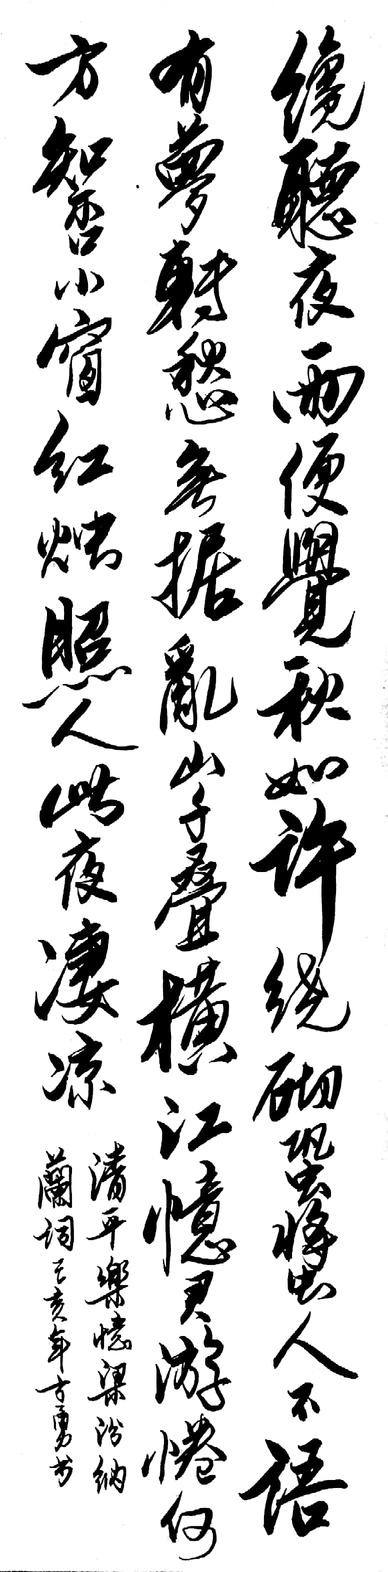 纔聽夜雨便覺秋如許绕砌蛩螀人不語
有夢轉愁無据亂山千疊橫江憶君游惓何
方知否小窗紅燭照人此夜凄凉
清平樂憶梁汾納
蘭詞己亥年方勇书